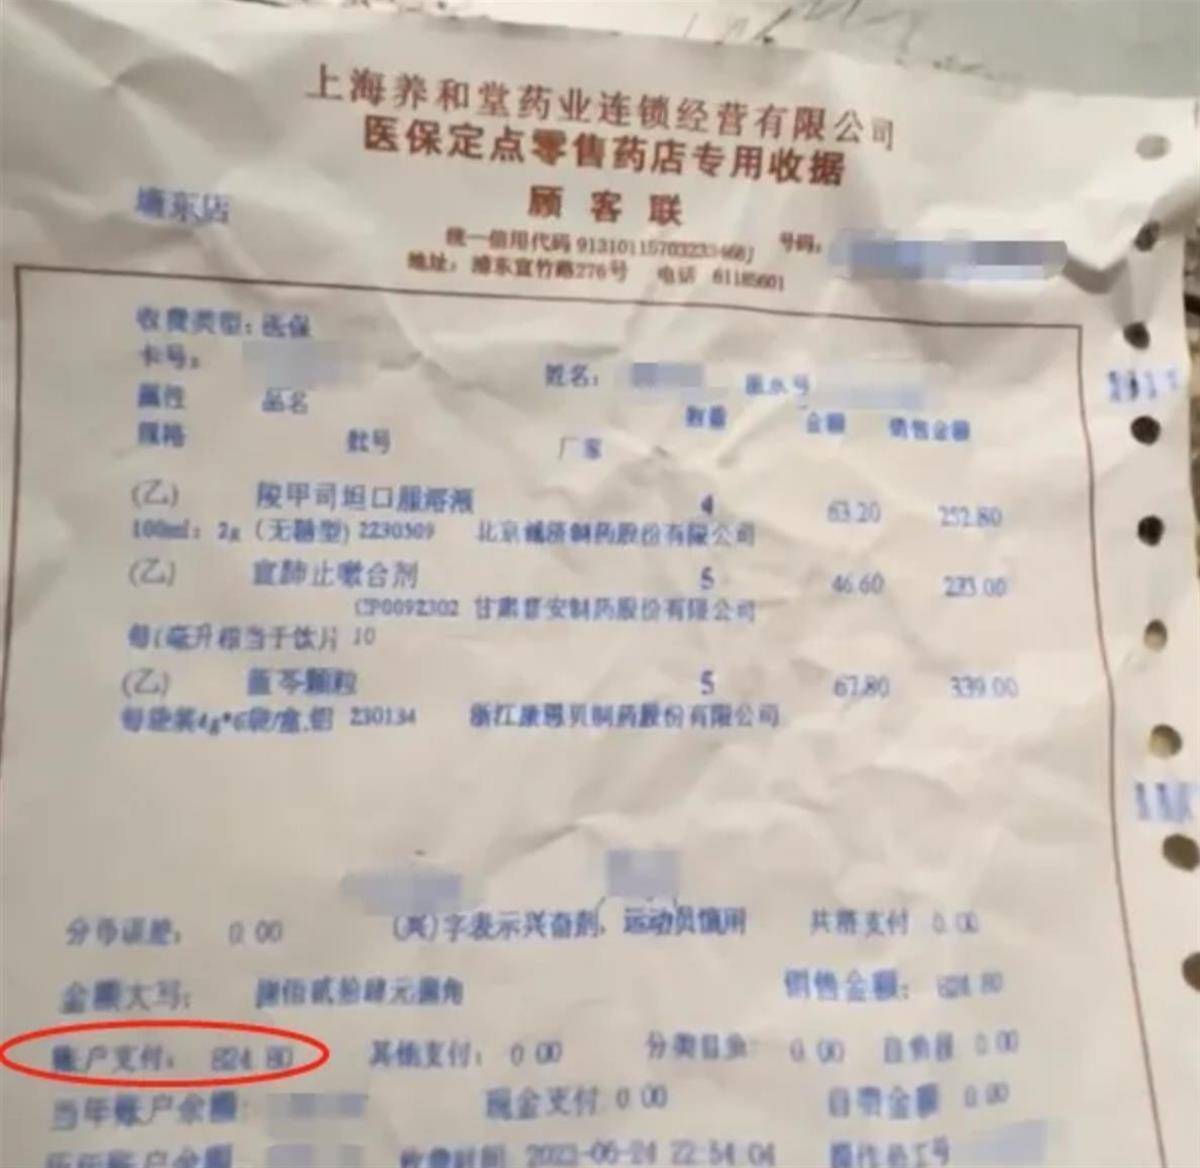 上海养和堂药业连锁经营有限公司
医保定点零售药店专用收据
顾客联
浦东店
统一信用代码 号码:
地址:浦东宜竹路276号 电话 61185601
收费类型:医保
卡号: 姓名: 流水号
属性 品名 数量 金额 销售金额
规格 批号 厂家
(乙) 羧甲司坦口服溶液 4 63.20 252.80
100ml:2g(无糖型) 2230509 北京诚济制药股份有限公司
(乙) 宣肺止嗽合剂 5 46.60 233.00
CP0092302 甘肃普安制药股份有限公司
每1毫升相当于饮片 10
(乙) 蓝芩颗粒 5 67.80 339.00
每袋装4g*6袋/盒,铝 230134 浙江康恩贝制药股份有限公司
分币误差: 0.00 (兴)字表示兴奋剂,运动员慎用 共济支付 0.00
金额大写: 捌佰贰拾肆元捌角 销售金额: 824.80
账户支付: 824.80 其他支付: 0.00 分类自负: 0.00 自负段 0.00
当年账户余额: 现金支付 0.00 自费金额 0.00
历年账户余额 收费时间 22:54:04 操作员工号